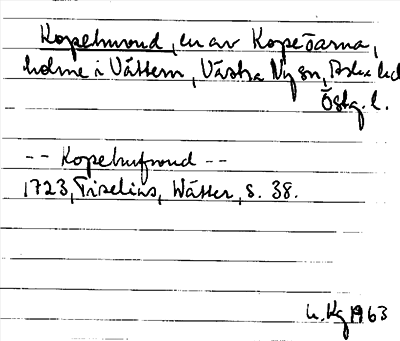 Kopehuvud, en av Kopeöarna,
holme i Vättern, Västra Ny sn, Aska hd
Östg. l.
-- Kopehufwud --
1723, Tiselius, Wätter, s. 38.
1963